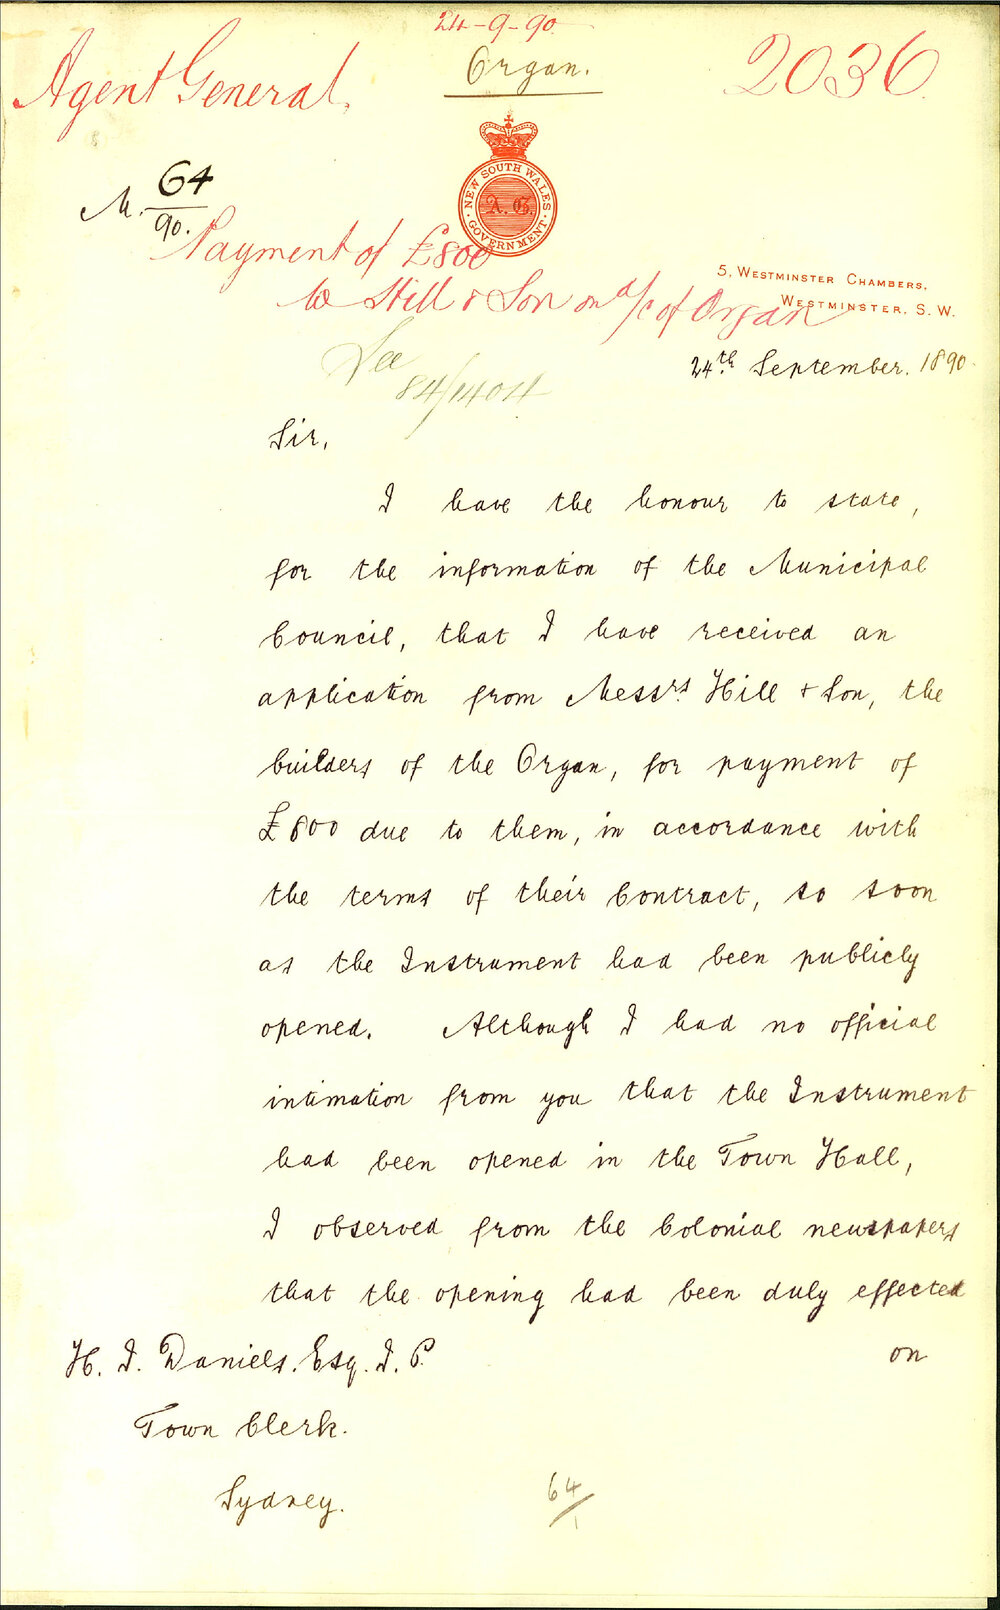 24-9-90
Organ.
Agent General.
2036
NEW SOUTH WALES
A.G.
GOVERNMENT
M. 64/90.
Payment of £800
to Hill & Son on a/c of Organ
5, WESTMINSTER CHAMBERS,
WESTMINSTER, S.W.
See
84/1404
24th September. 1890.
Sir,
I have the honour to state,
for the information of the Municipal
Council, that I have received an
application from Messrs. Hill & Son, the
builders of the Organ, for payment of
£800 due to them, in accordance with
the terms of their Contract, so soon
as the Instrument had been publicly
opened. Although I had no official
intimation from you that the Instrument
had been opened in the Town Hall,
I observed from the Colonial newspapers
that the opening had been duly effected
on
H. J. Daniels. Esq. J. P.
Town Clerk.
Sydney.
64/1